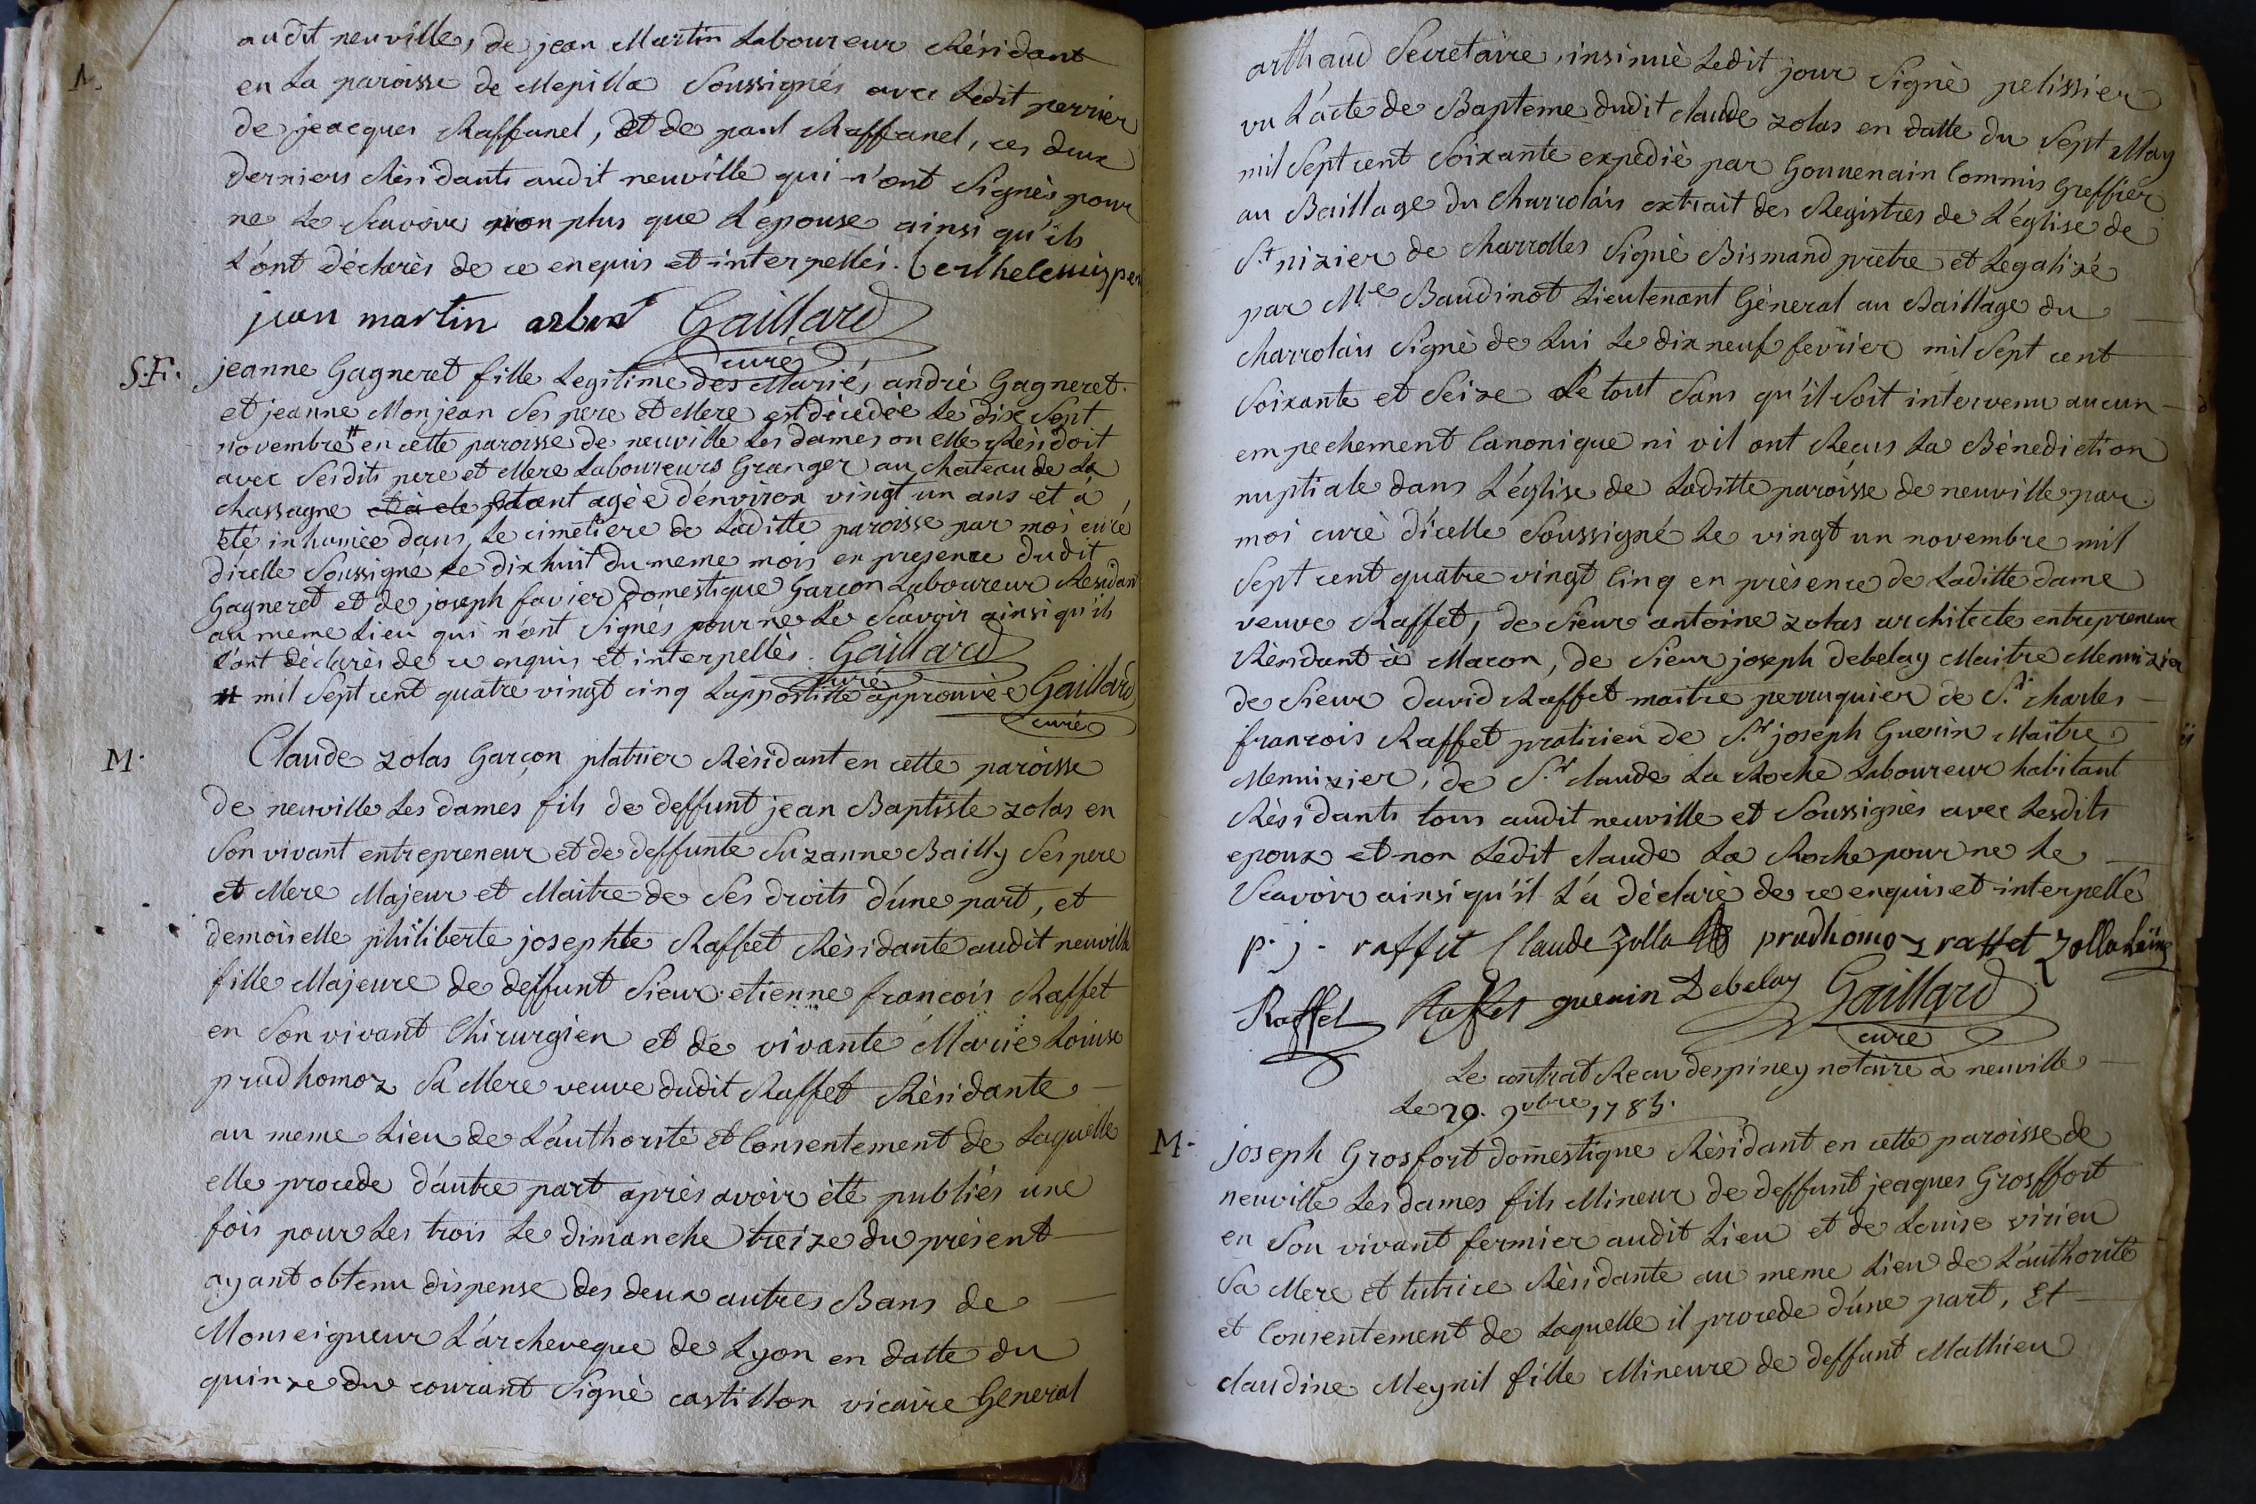 audit neuville, de jean Martin Laboureur Résidant
M.
en La paroisse de Mepilla Soussignés avec Ledit perrier
de jeacques Raffanel, Et de paul Raffanel, ces deux
derniers Résidants audit neuville qui n'ont Signès pour
ne Le Scavoir non plus que L'epouse ainsi qu'ils
L'ont déclarès de ce enquis et interpellés.
jean martin Gaillard
curé
S.F. jeanne Gagneret fille Legitime des Mariés andrè Gagneret
et jeanne Monjean Ses pere et Mere est décédée Le dix Sept
novembre # en cette paroisse de neuville Les dames ou elle Résidoit
avec Sesdits pere et Mere Laboureurs Granger au chateau de La
chassagne etant agèe d'environ vingt un ans et à
été inhumée dans Le cimetiere de Laditte paroisse par moi curé
d'icelle Soussigné Le dix huit du meme mois en presence dudit
Gagneret et de joseph favier domestique Garcon Laboureur Residant
au meme Lieu qui n'ont Signés pour ne Le Scavoir ainsi qu'ils
L'ont déclarès de ce enquis et interpellès. Gaillard
curé
# mil Sept cent quatre vingt cinq Lappostille approuvèe Gaillard
curé
M. Claude zolas Garçon platrier Résidant en cette paroisse
de neuville Les dames fils de deffunt jean Baptiste zolas en
Son vivant entrepreneur et de deffunte Suzanne Bailly Ses pere
et Mere Majeur et Maitre de Ses droits d'une part, et
demoiselle philiberte josephte Raffet Résidante audit neuville
fille Majeure de deffunt Sieur etienne francois Raffet
en Son vivant Chirurgien et de vivante Marie Louise
prudhomoz Sa Mere veuve dudit Raffet Résidante
au meme Lieu de L'authorité et Consentement de Laquelle
elle procede d'autre part après avoir èté publiés une
fois pour Les trois Le dimanche treize du présent
ayant obtenu dispense des deux autres Bans de
Monseigneur L'archeveque de Lyon en datte du
quinze du courant Signè castillon vicaire General
arthaud Secretaire, insinuè Ledit jour Signè pelissier
vu L'acte de Bapteme dudit claude zolas en datte du Sept May
mil Sept cent Soixante expédiè par Gouvenain Commis Greffier
au Baillage du Charrolais extrait des Registres de L'église de
St nizier de charrolles Signè Bismand pretre et Legalizé
par Me Baudinot Lieutenant Gèneral au Baillage du
charrolais Signè de Lui Le dix neuf fevrier mil Sept cent
Soixante et Seize Le tout Sans qu'il Soit intervenu aucun
empechement Canonique ni vil ont Reçus La Bénediction
nuptiale dans L'église de Laditte paroisse de neuville par
moi curè d'icelle Soussigné Le vingt un novembre mil
Sept cent quatre vingt Cinq en prèsence de Laditte dame
veuve Raffet, de Sieur antoine zolas architecte entrepreneur
Résidant à Macon, de Sieur joseph debelay Maitre Menuizier
de Sieur david Raffet maitre perruquier de Sr. charles
francois Raffet praticien de Sr joseph Guerin Maitre
Menuizier, de Sr claude La Roche Laboureur habitant
Résidants tous audit neuville et Soussignès avec Lesdits
epoux et non Ledit claude La Roche pour ne Le
Scavoir ainsi qu'il L'a déclarè de ce enquis et interpellé
p. j. raffet Claude Zolla prudhomoz raffet Zolla Lainé
Raffet Raffet guerin Debelay Gaillard
curé
Le contrat Recu despiney notaire à neuville
Le 20. 9bre 1785.
M. joseph Grosfort domestique Résidant en cette paroisse de
neuville Les dames fils Mineur de deffunt jeaques Grosffort
en Son vivant fermier audit Lieu et de Louise virieu
Sa Mere et tutrice Résidante au meme Lieu de L'authorité
et Consentement de Laquelle il procede d'une part, Et
claudine Meynil fille Mineure de deffunt Mathieu